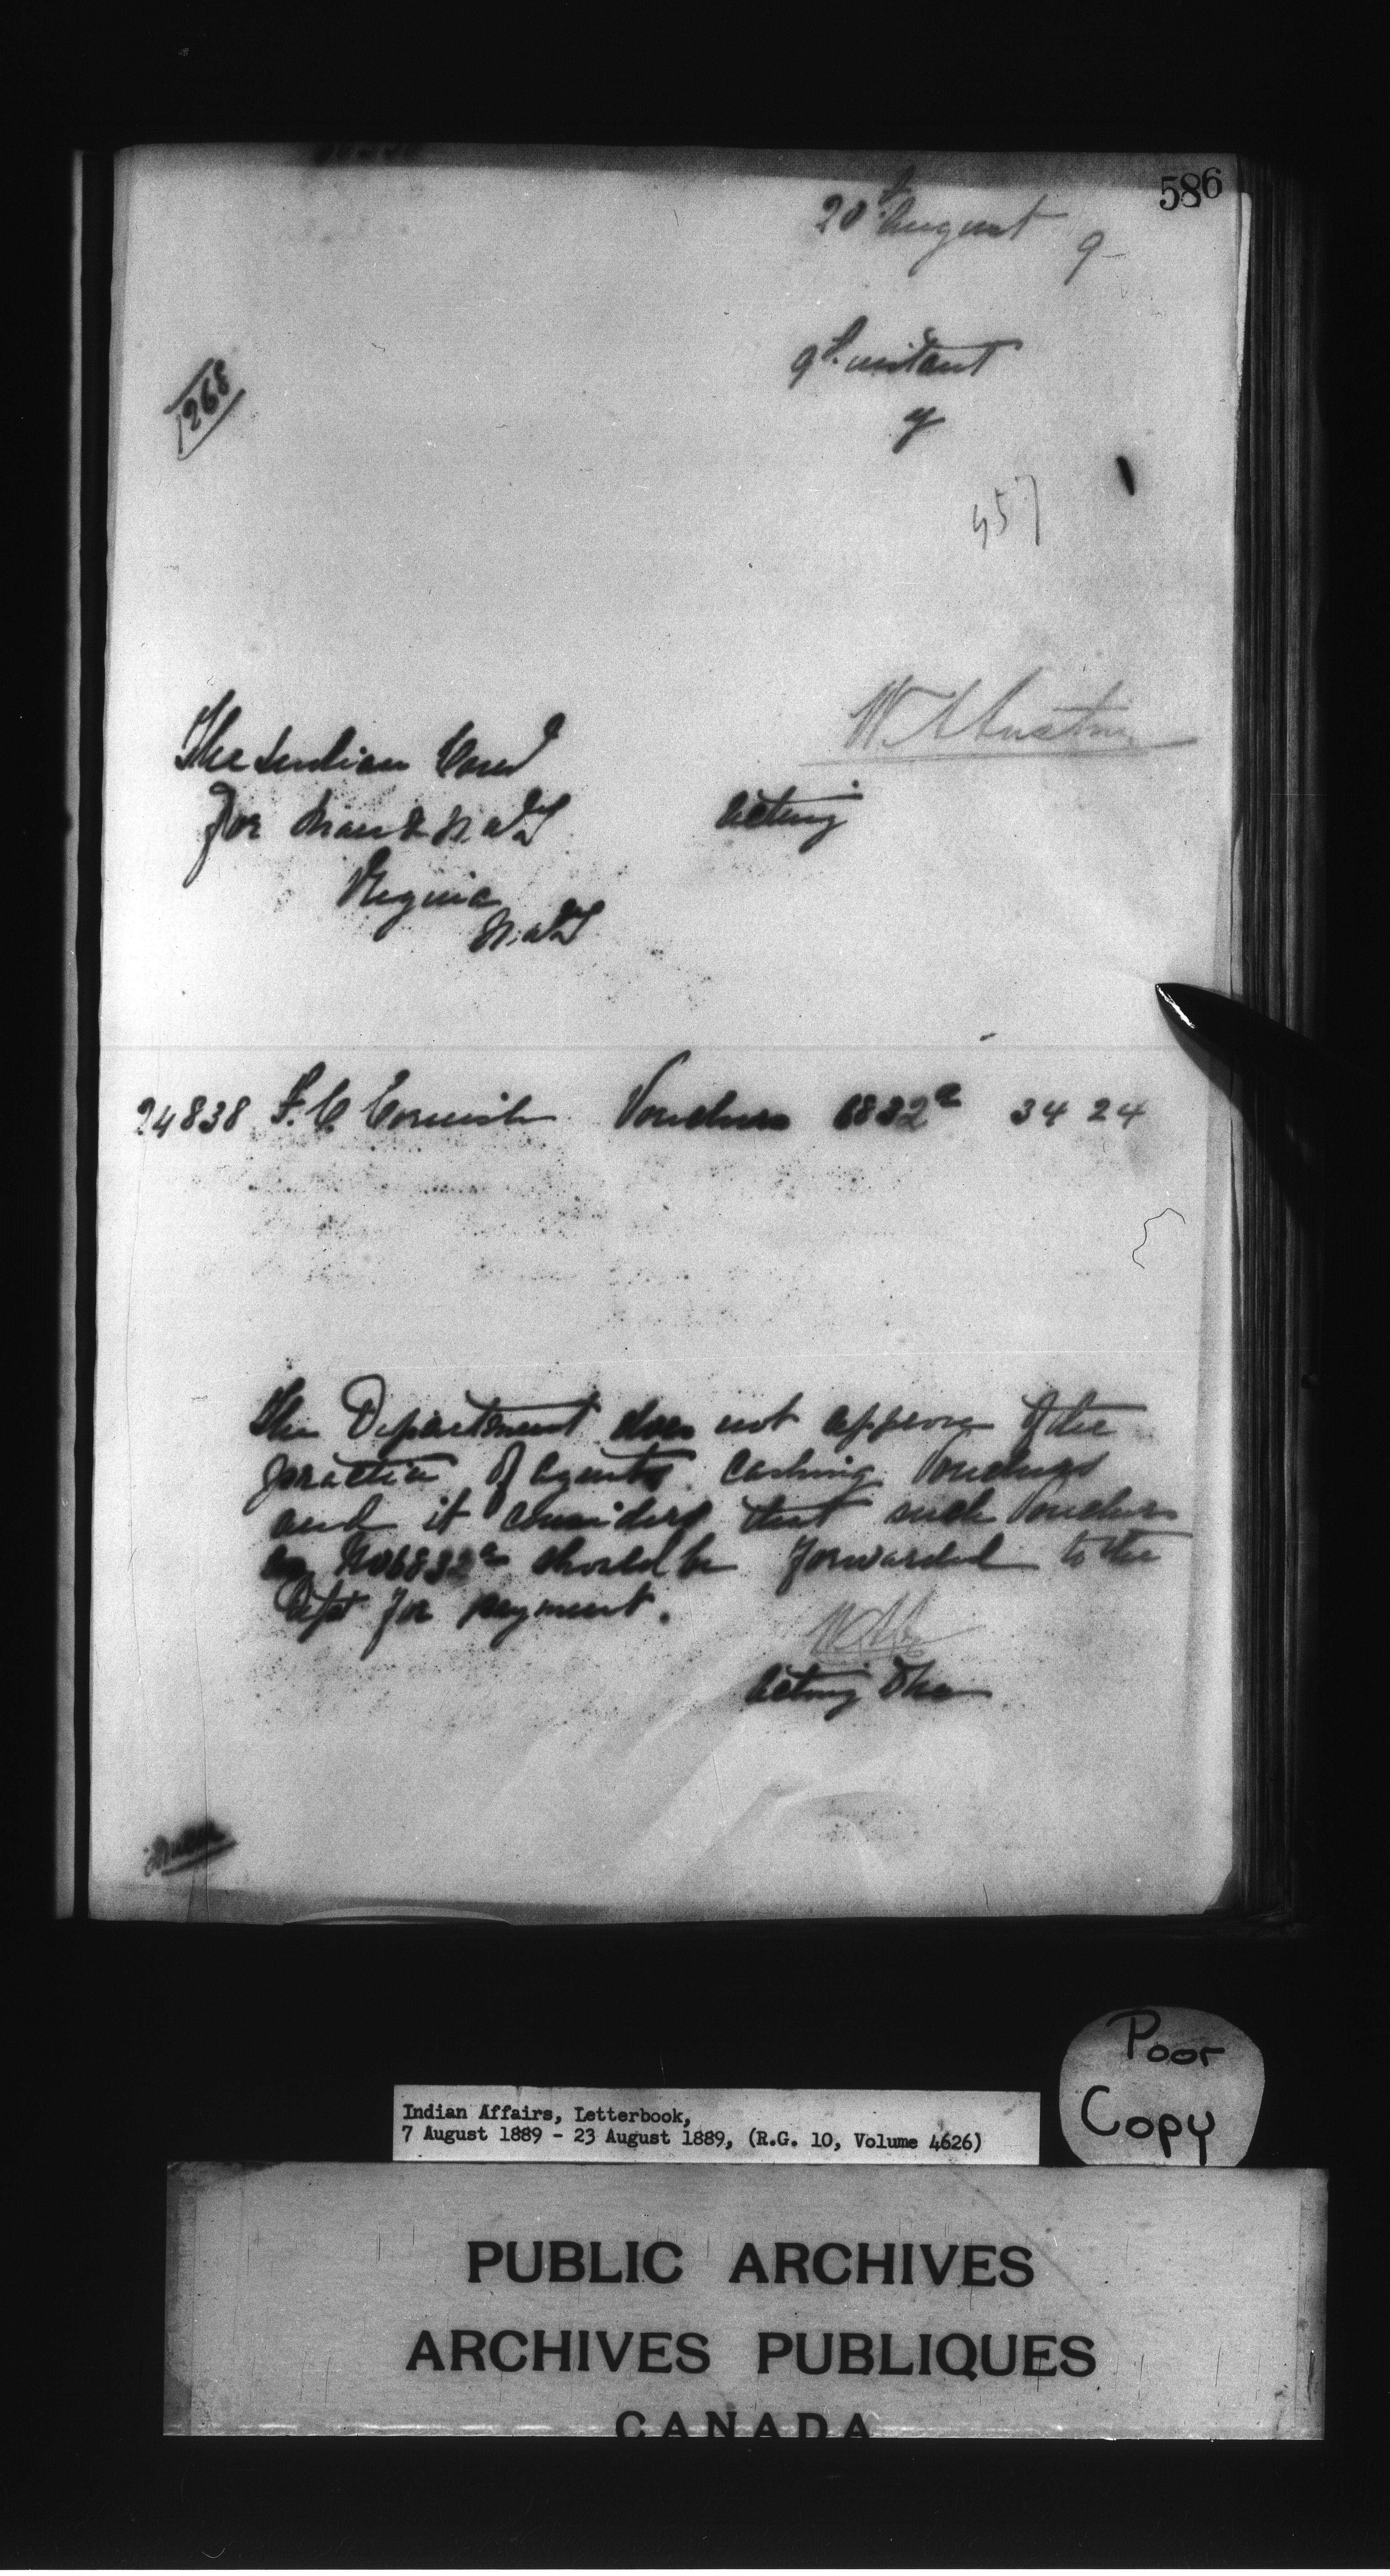 586
20th August 9
9th instant
y
1268
457
W. A. Austin
The Indian Comr
for Man & N.W.T
Acting
Regina
N.W.T
24838 F. C. Cornish Vouchers 6832a 34 24
The Department does not approve of the
practice of agents cashing Vouchers
and it considers that such Vouchers
as No 6832a should be forwarded to the
Dept for payment.
Acting
Poor
Copy
Indian Affairs, Letterbook,
7 August 1889 - 23 August 1889, (R.G. 10, Volume 4626)
PUBLIC ARCHIVES
ARCHIVES PUBLIQUES
CANADA